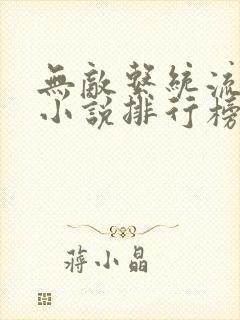 無敵繫統流
小說排行榜
蔣小晶